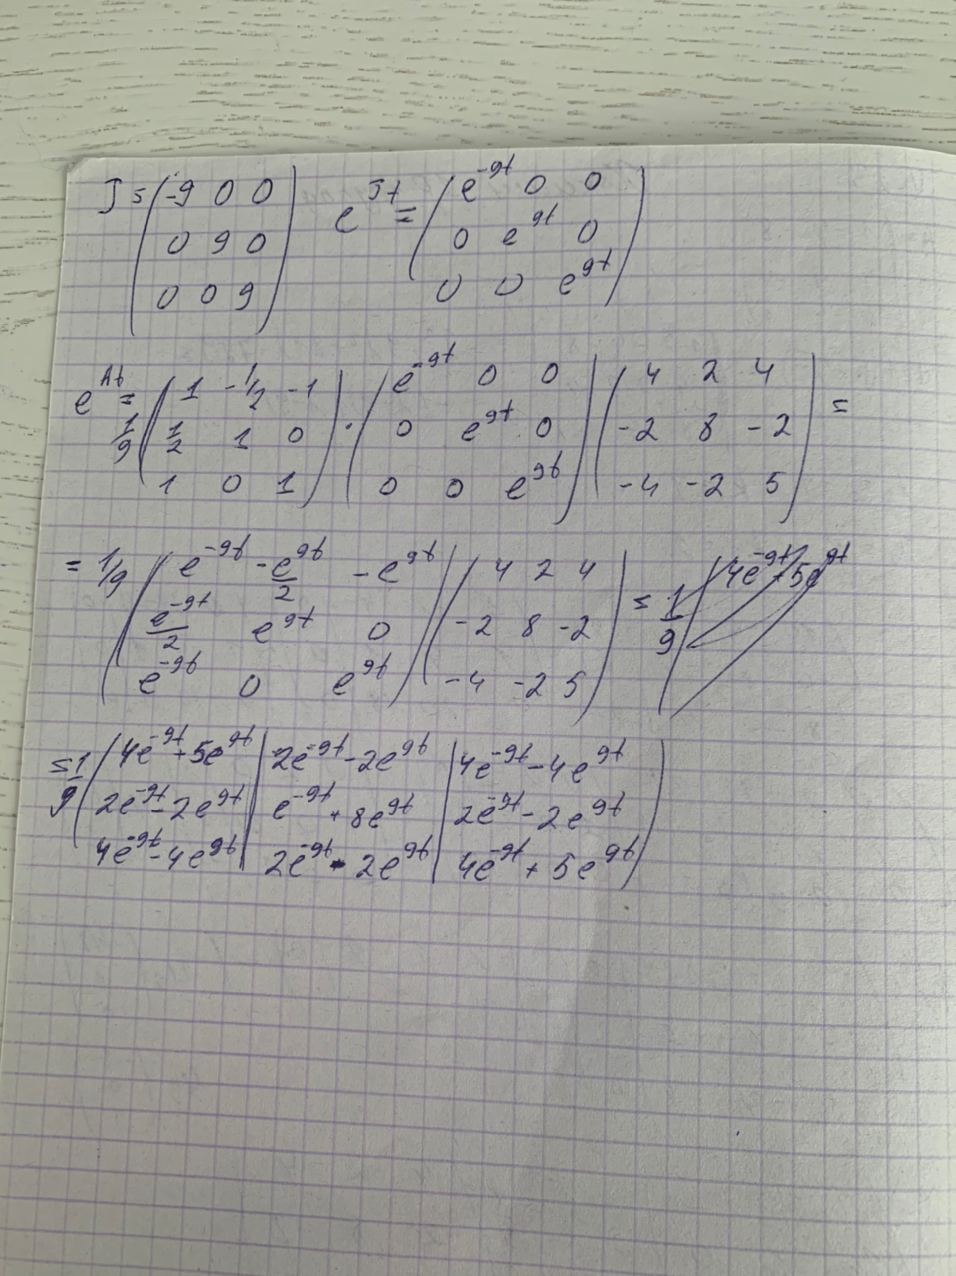 J = (-9 0 0; 0 9 0; 0 0 9) e^{Jt} = (e^{-9t} 0 0; 0 e^{9t} 0; 0 0 e^{9t})
e^{At} = 1/9 (1 -1/2 -1; 1/2 1 0; 1 0 1) · (e^{-9t} 0 0; 0 e^{9t} 0; 0 0 e^{9t}) (4 2 4; -2 8 -2; -4 -2 5) =
= 1/9 (e^{-9t} -e^{9t}/2 -e^{9t}; e^{-9t}/2 e^{9t} 0; e^{-9t} 0 e^{9t}) (4 2 4; -2 8 -2; -4 -2 5) = 1/9 (4e^{-9t}+5e^{9t}
= 1/9 (4e^{-9t}+5e^{9t} | 2e^{-9t}-2e^{9t} | 4e^{-9t}-4e^{9t}; 2e^{-9t}-2e^{9t} | e^{-9t}+8e^{9t} | 2e^{-9t}-2e^{9t}; 4e^{-9t}-4e^{9t} | 2e^{-9t}-2e^{9t} | 4e^{-9t}+5e^{9t})